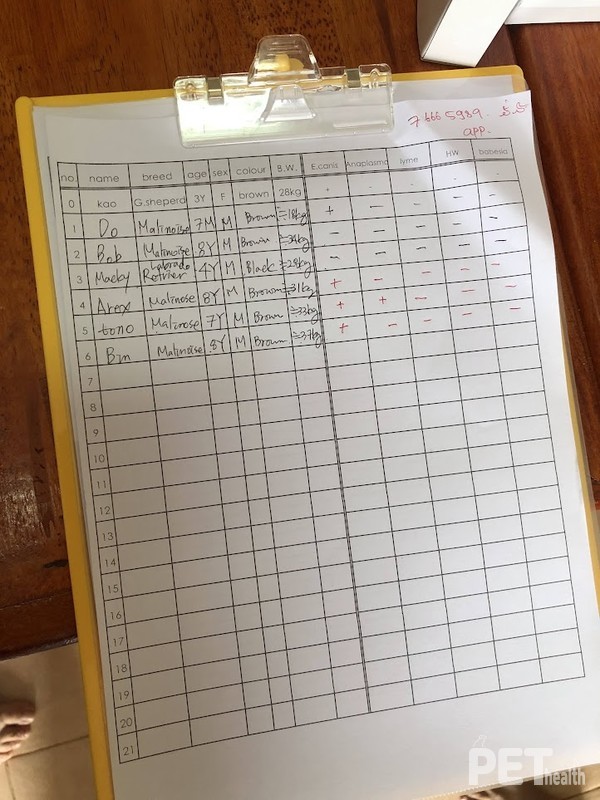 7 666 5989.
app.
no. name breed age sex colour B.W. E.canis Anaplasma lyme HW babesia
0 kao G.sheperd 3Y F brown 28kg + - - - -
1 Do Malinoise 7M M Brown ≥18kg + - - - -
2 Bob Malinoise 8Y M Brown ≥34kg - - - - -
3 Labrado 4Y M Black ≥28kg - - - - -
4 Arex Malinose 8Y M Brown ≥31kg + - - - -
5 tono Malinose 7Y M Brown ≥33kg + + - - -
6 Bin Malinoise 8Y M Brown ≥37kg + - - - -
7
8
9
10
11
12
13
14
15
16
17
18
19
20
21
PET
health